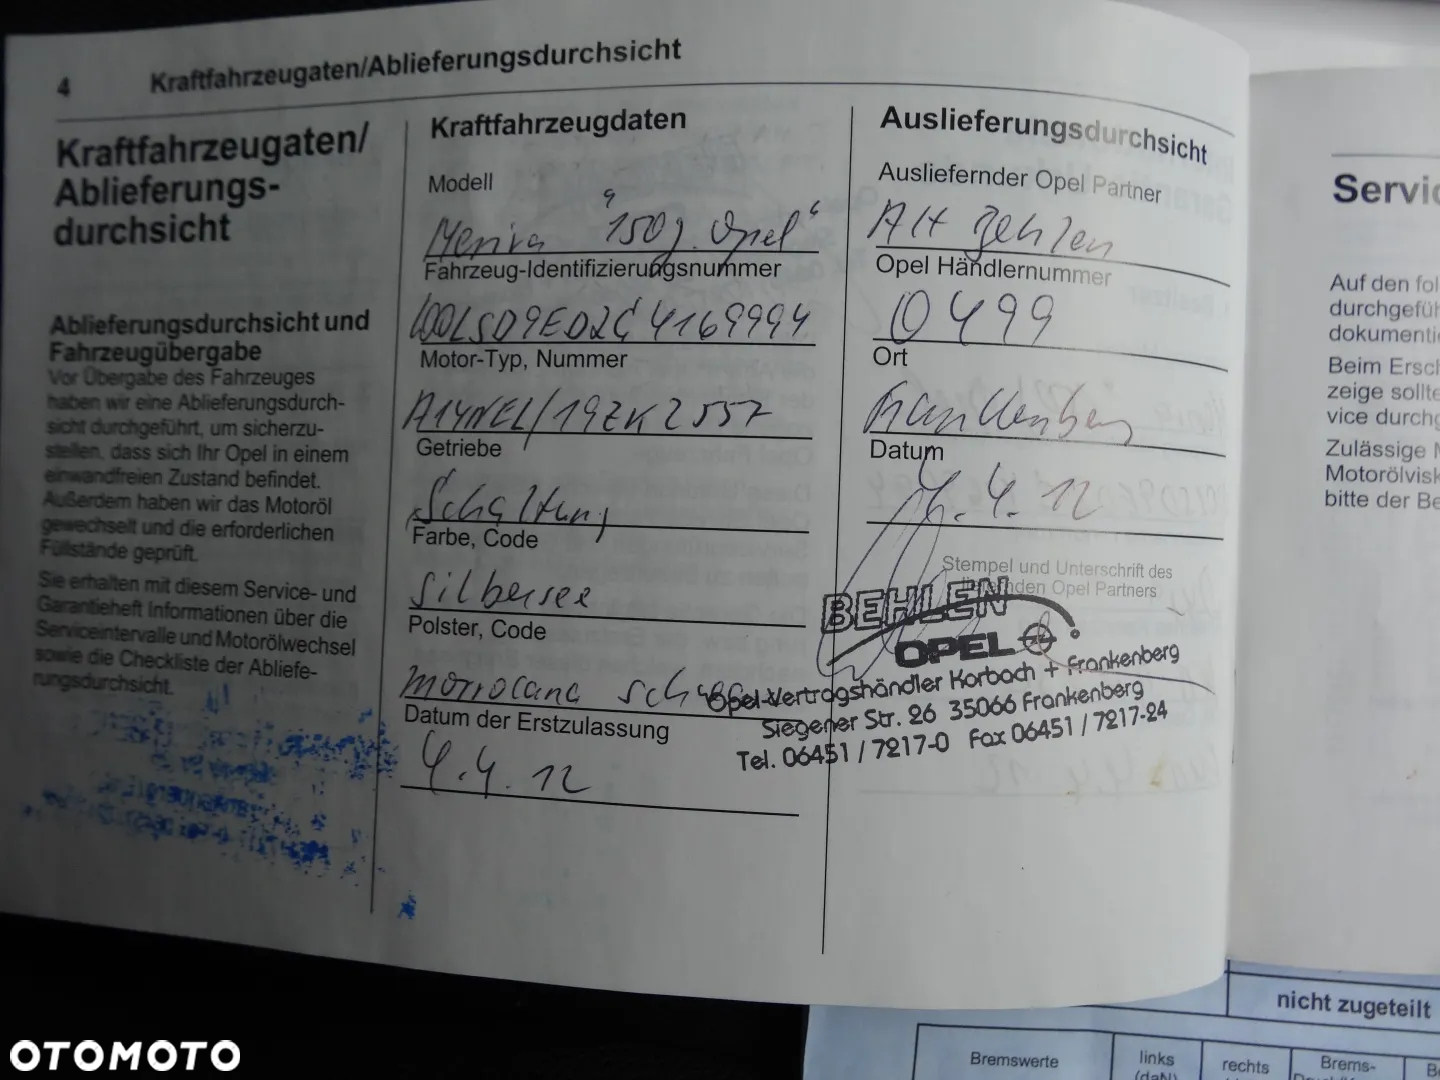 4
Kraftfahrzeugaten/Ablieferungsdurchsicht
Kraftfahrzeugaten/
Ablieferungs-
durchsicht
Ablieferungsdurchsicht und
Fahrzeugübergabe
Vor Übergabe des Fahrzeuges
haben wir eine Ablieferungsdurch-
sicht durchgeführt, um sicherzu-
stellen, dass sich Ihr Opel in einem
einwandfreien Zustand befindet.
Außerdem haben wir das Motoröl
gewechselt und die erforderlichen
Füllstände geprüft.
Sie erhalten mit diesem Service- und
Garantieheft Informationen über die
Serviceintervalle und Motorölwechsel
sowie die Checkliste der Abliefe-
rungsdurchsicht.
Kraftfahrzeugdaten
Modell
Meriva "150 J. Opel"
Fahrzeug-Identifizierungsnummer
W0LSD9ED2C4169994
Motor-Typ, Nummer
A14NEL/19ZK2557
Getriebe
Schaltung
Farbe, Code
Silbersee
Polster, Code
Morrocana
Datum der Erstzulassung
4.4.12
Auslieferungsdurchsicht
Ausliefernder Opel Partner
AH Behlen
Opel Händlernummer
0499
Ort
Frankenberg
Datum
4.4.12
Stempel und Unterschrift des
Opel Partners
BEHLEN
OPEL
Opel-Vertragshändler Korbach + Frankenberg
Siegener Str. 26 35066 Frankenberg
Tel. 06451 / 7217-0 Fax 06451 / 7217-24
Auf den
durchgefüh
dokumenti
Beim
zeige sollte
vice
Zulässige
bitte der
nicht zugeteilt
Bremswerte
links
(daN)
rechts
Brems-
OTOMOTO